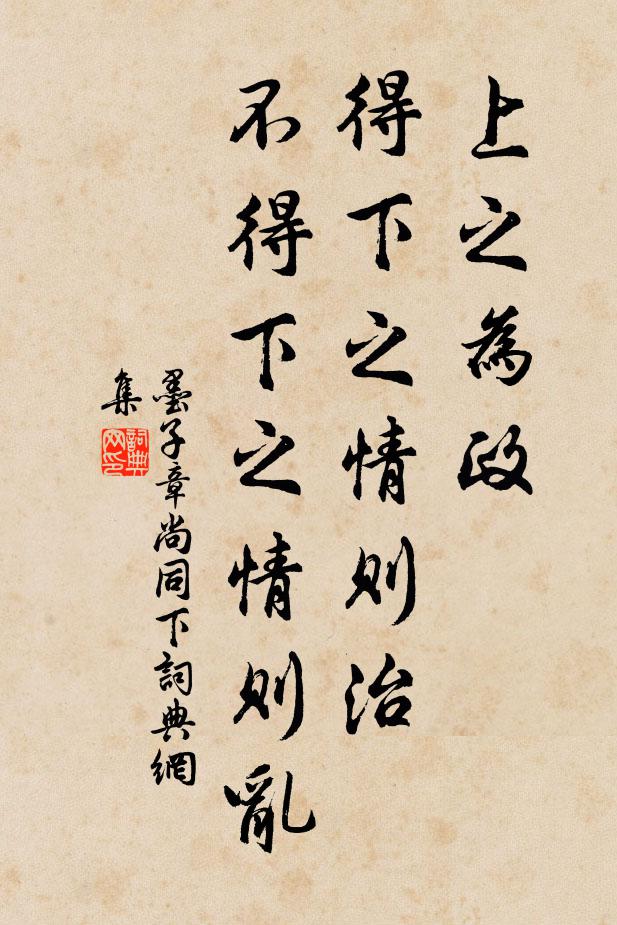 上之為政
得下之情則治
不得下之情則亂
墨子章尚同下詞典網
集
詞典
网印